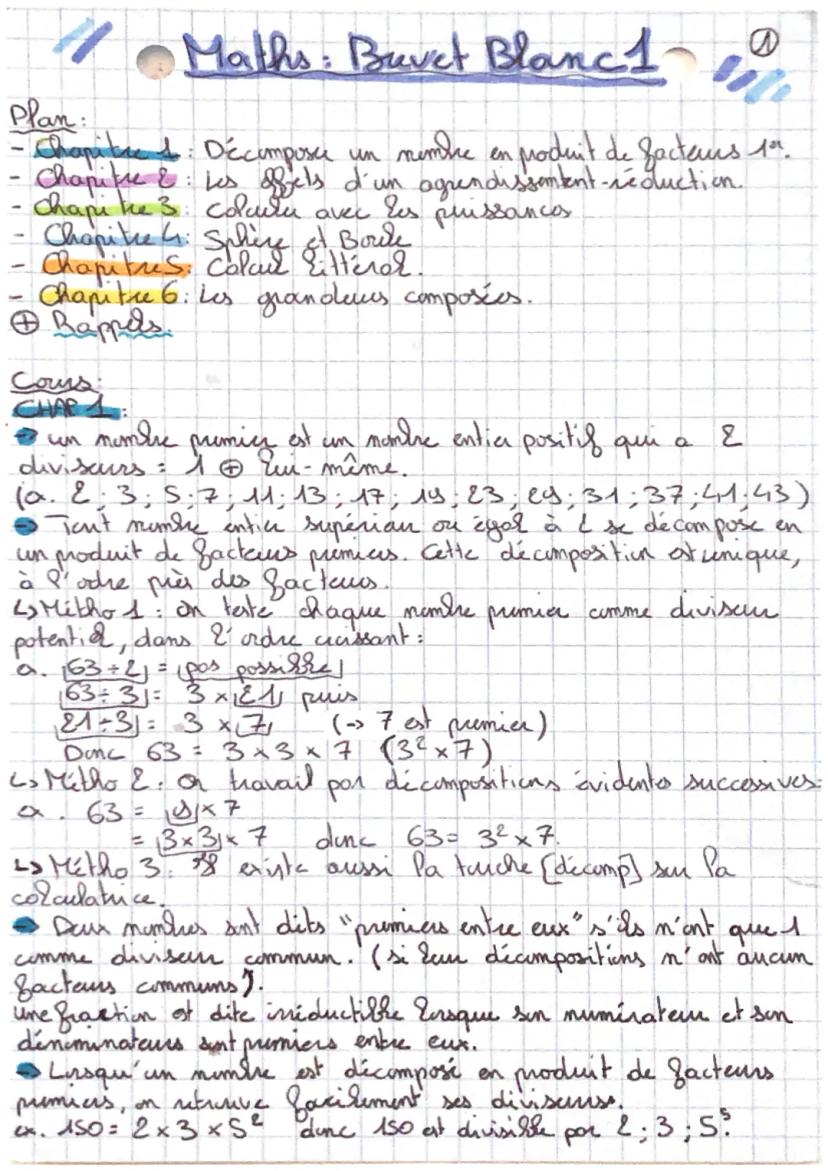 Maths : Buvet Blanc 1
①
Plan :
- Chapitre 1 : Décomposer un nombre en produit de facteurs 1er.
- Chapitre 2 : Les effets d'un agrandissement-réduction.
- Chapitre 3 : Calculer avec les puissances
- Chapitre 4 : Sphère et Boule
- Chapitre 5 : Calcul littéral.
- Chapitre 6 : Les grandeurs composées.
⊕ Rappels.
Cours :
CHAP 1 :
→ un nombre premier est un nombre entier positif qui a 2
diviseurs = 1 ⊕ lui-même.
(a. 2 ; 3 ; 5 ; 7 ; 11 ; 13 ; 17 ; 19 ; 23 ; 29 ; 31 ; 37 ; 41 ; 43)
→ Tout nombre entier supérieur ou égal à 2 se décompose en
un produit de facteurs premiers. Cette décomposition est unique,
à l'ordre près des facteurs.
↳ Métho 1 : on teste chaque nombre premier comme diviseur
potentiel, dans l'ordre croissant :
a. 63 ÷ 2 = pas possible
63 ÷ 3 = 3 × 21 puis
21 ÷ 3 = 3 × 7 (→ 7 est premier)
Donc 63 = 3 × 3 × 7 (3² × 7)
↳ Métho 2 : On travail par décompositions évidentes successives :
a. 63 = 9 × 7
= 3 × 3 × 7 donc 63 = 3² × 7.
↳ Métho 3 : Il existe aussi la touche [décomp] sur la
calculatrice.
→ Deux nombres sont dits "premiers entre eux" s'ils n'ont que 1
comme diviseur commun. (si leur décompositions n'ont aucun
facteurs communs).
une fraction est dite irréductible lorsque son numérateur et son
dénominateurs sont premiers entre eux.
→ Lorsqu'un nombre est décomposé en produit de facteurs
premiers, on retrouve facilement ses diviseurs.
ex. 150 = 2 × 3 × 5² donc 150 est divisible par 2 ; 3 ; 5